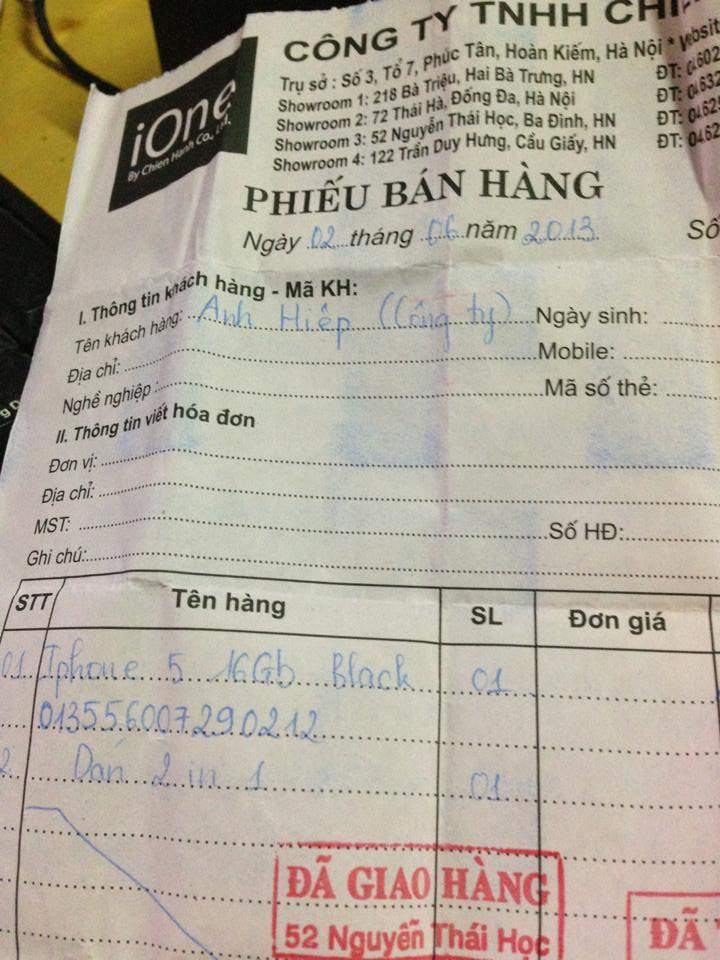 CÔNG TY TNHH
iOne
By Chien Hanh Co., Ltd.
Trụ sở : Số 3, Tổ 7, Phúc Tân, Hoàn Kiếm, Hà Nội *
Showroom 1: 218 Bà Triệu, Hai Bà Trưng, HN ĐT:
Showroom 2: 72 Thái Hà, Đống Đa, Hà Nội ĐT:
Showroom 3: 52 Nguyễn Thái Học, Ba Đình, HN ĐT:
Showroom 4: 122 Trần Duy Hưng, Cầu Giấy, HN ĐT:
PHIẾU BÁN HÀNG
Ngày 02 tháng 06 năm 2013 Số
I. Thông tin khách hàng - Mã KH:
Tên khách hàng: Anh Hiệp (Công ty) Ngày sinh:
Địa chỉ: Mobile:
Nghề nghiệp : Mã số thẻ:
II. Thông tin viết hóa đơn
Đơn vị:
Địa chỉ:
MST: Số HĐ:
Ghi chú:
STT Tên hàng SL Đơn giá
01 Iphone 5 16Gb Black 01
013556007290212
2 Dán 2 in 1 01
ĐÃ GIAO HÀNG
52 Nguyễn Thái Học
ĐÃ